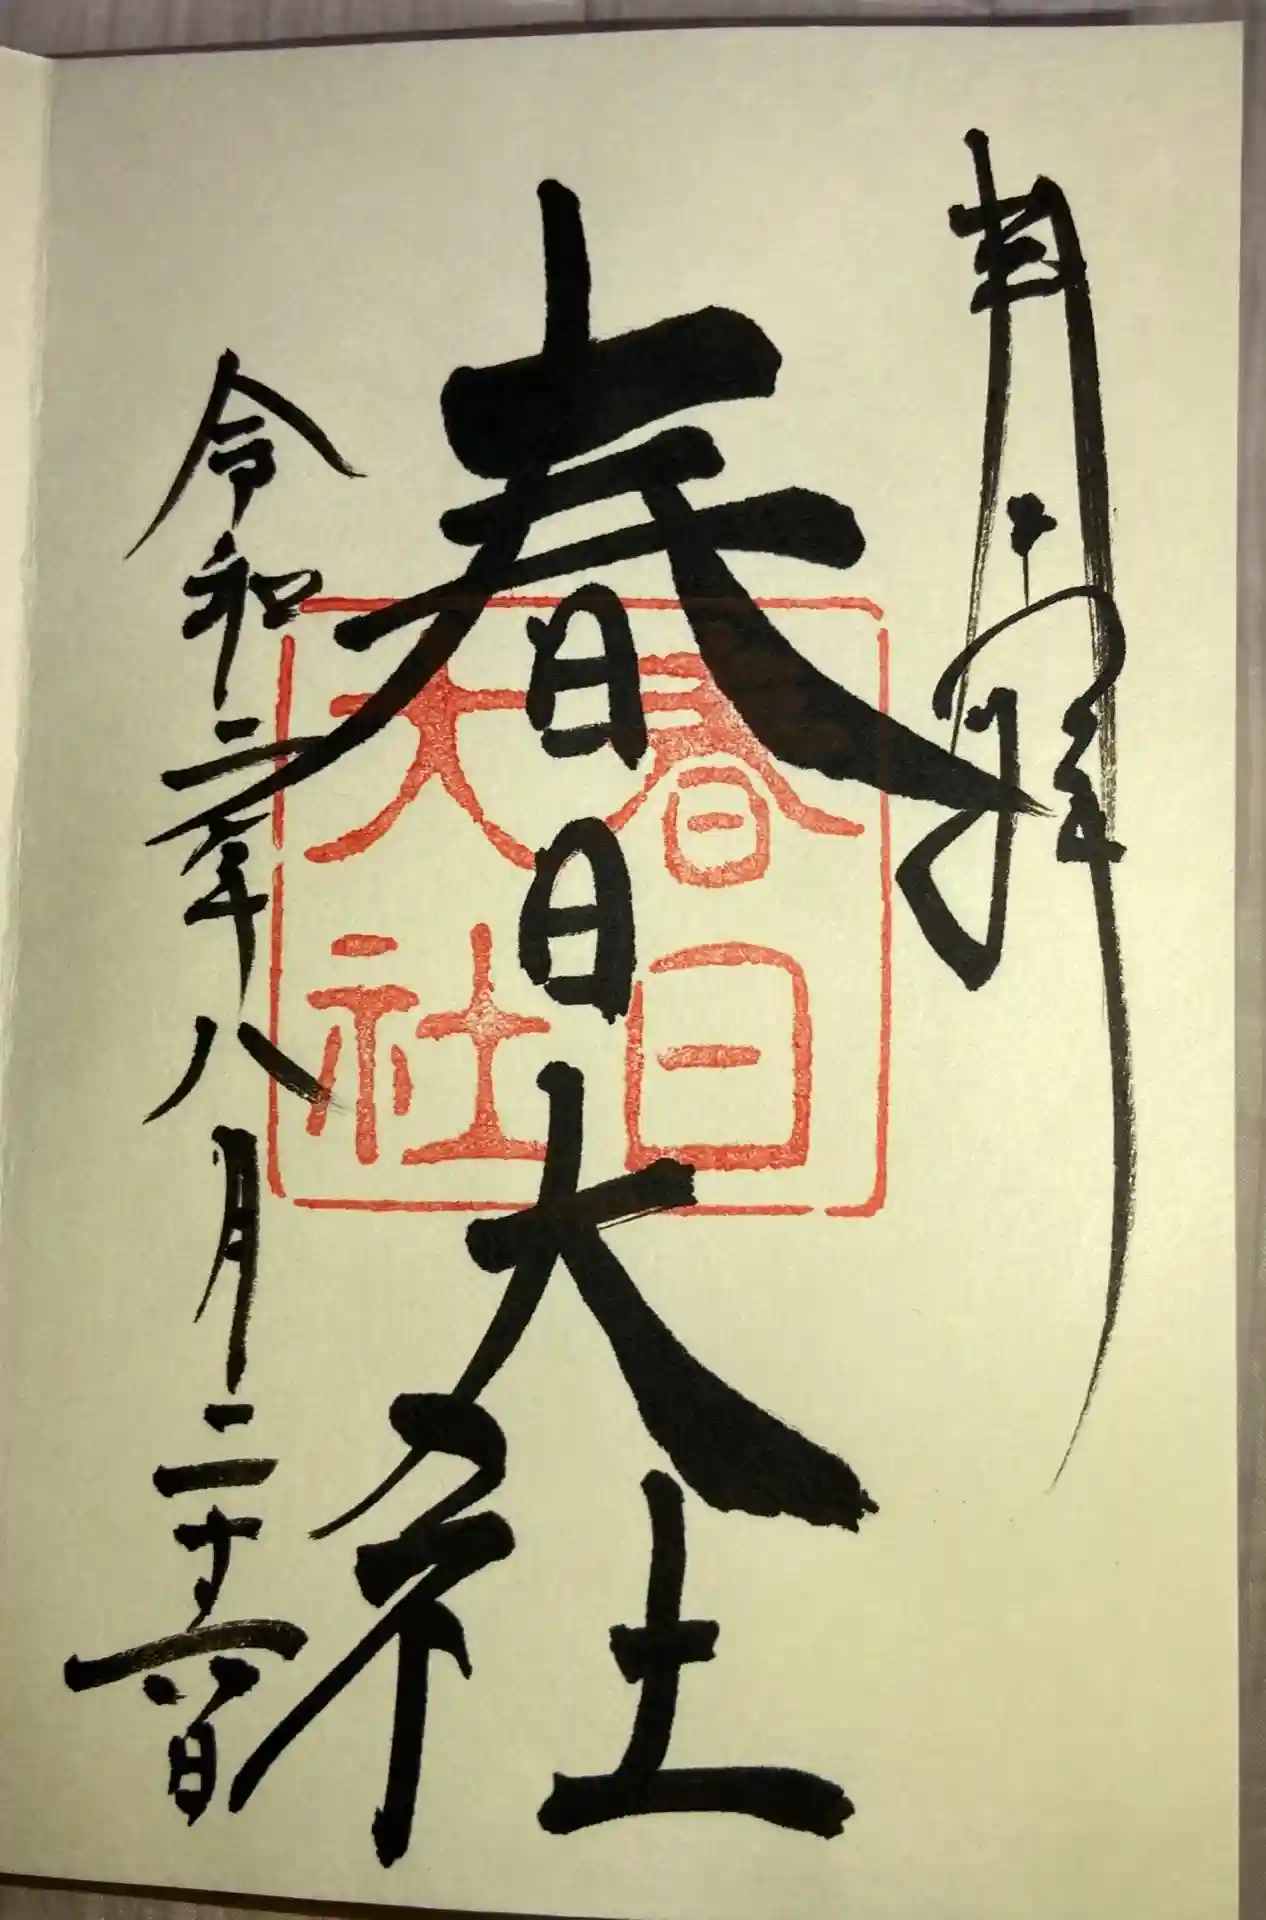 奉拝
春日大社
春日
大社
令和二年八月二十六日